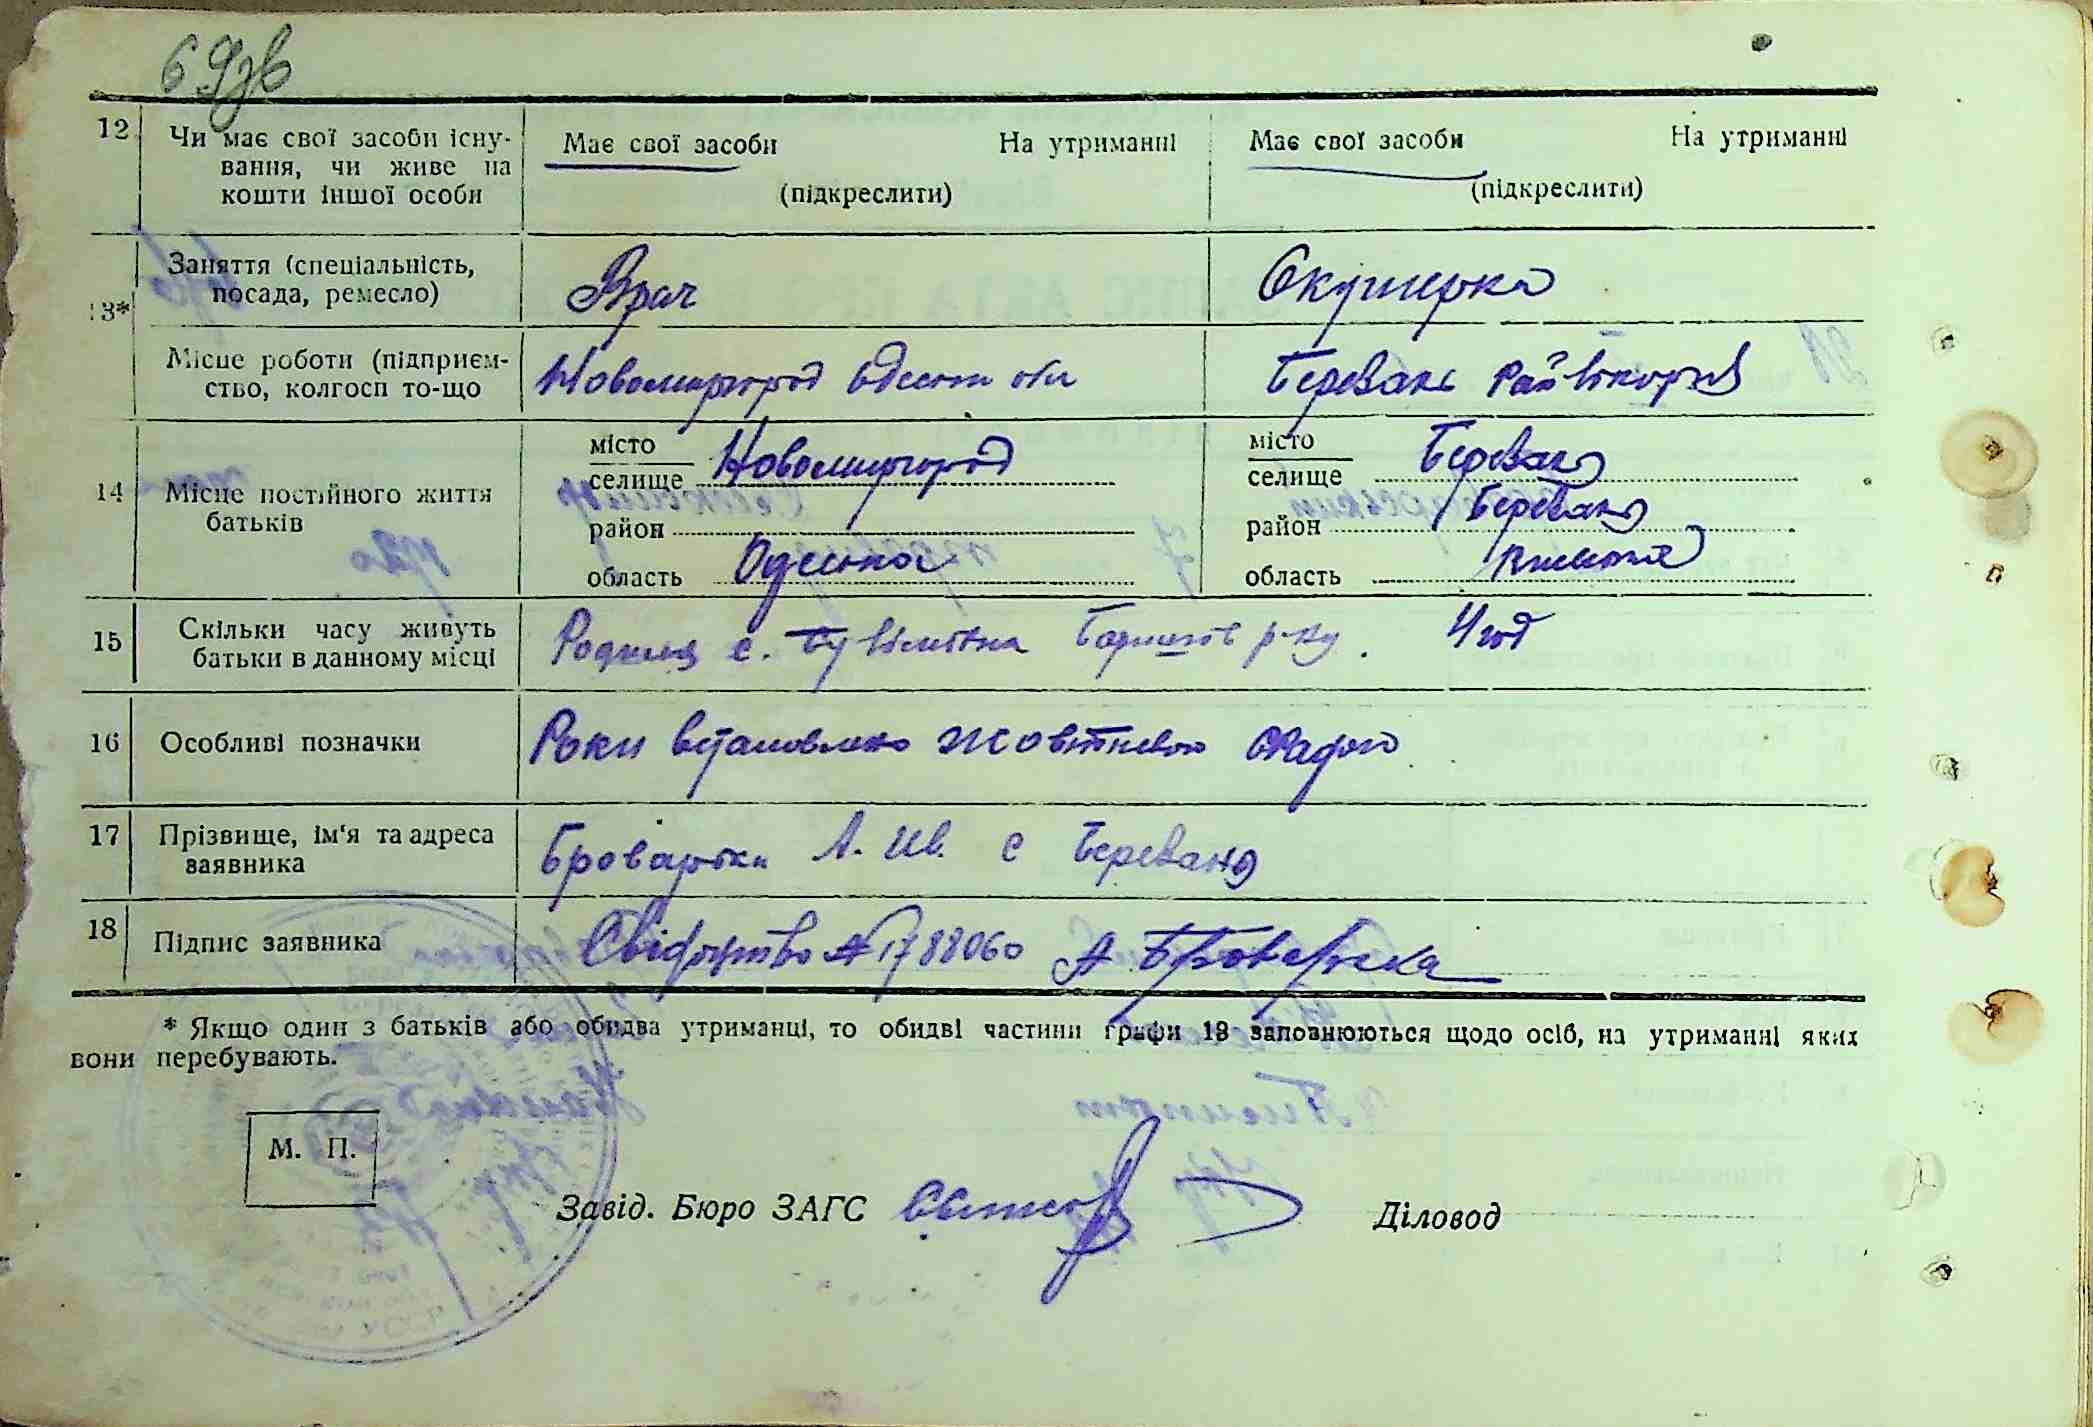 12 Чи має свої засоби існу-
вання, чи живе на
кошти іншої особи
Має свої засоби На утриманні
(підкреслити)
Має свої засоби На утриманні
(підкреслити)
13* Заняття (спеціальність,
посада, ремесло)
Врач
Окушерка
Місце роботи (підприєм-
ство, колгосп то-що
Новомиргород Одеськ обл
Березань
14 Місце постійного життя
батьків
місто
селище Новомиргород
район
область Одеська
місто
селище Березань
район Березань
область Київська
15 Скільки часу живуть
батьки в данному місці
с. р-ну. 4 год
16 Особливі позначки
Роки встановлено
17 Прізвище, ім'я та адреса
заявника
Броварська А. Ив. с Березань
18 Підпис заявника
Свідоцтво № 1788060 А Броварська
* Якщо один з батьків або обидва утриманці, то обидві частини графи 13 заповнюються щодо осіб, на утриманні яких
вони перебувають.
М. П.
Завід. Бюро ЗАГС
Діловод